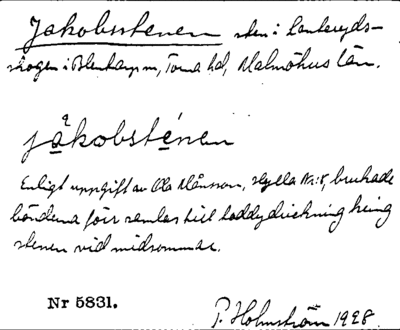 Jakobsstenen sten i Lanteryds-
skogen i Blentarp sn, Torna hd, Malmöhus län.
jåkobsténen
Enligt uppgift av Ola Månsson, Hylla Nr: 8, brukade
bönderna förr samlas till toddydrickning kring
stenen vid midsommar.
Nr 5831.
P. Holmström 1928.